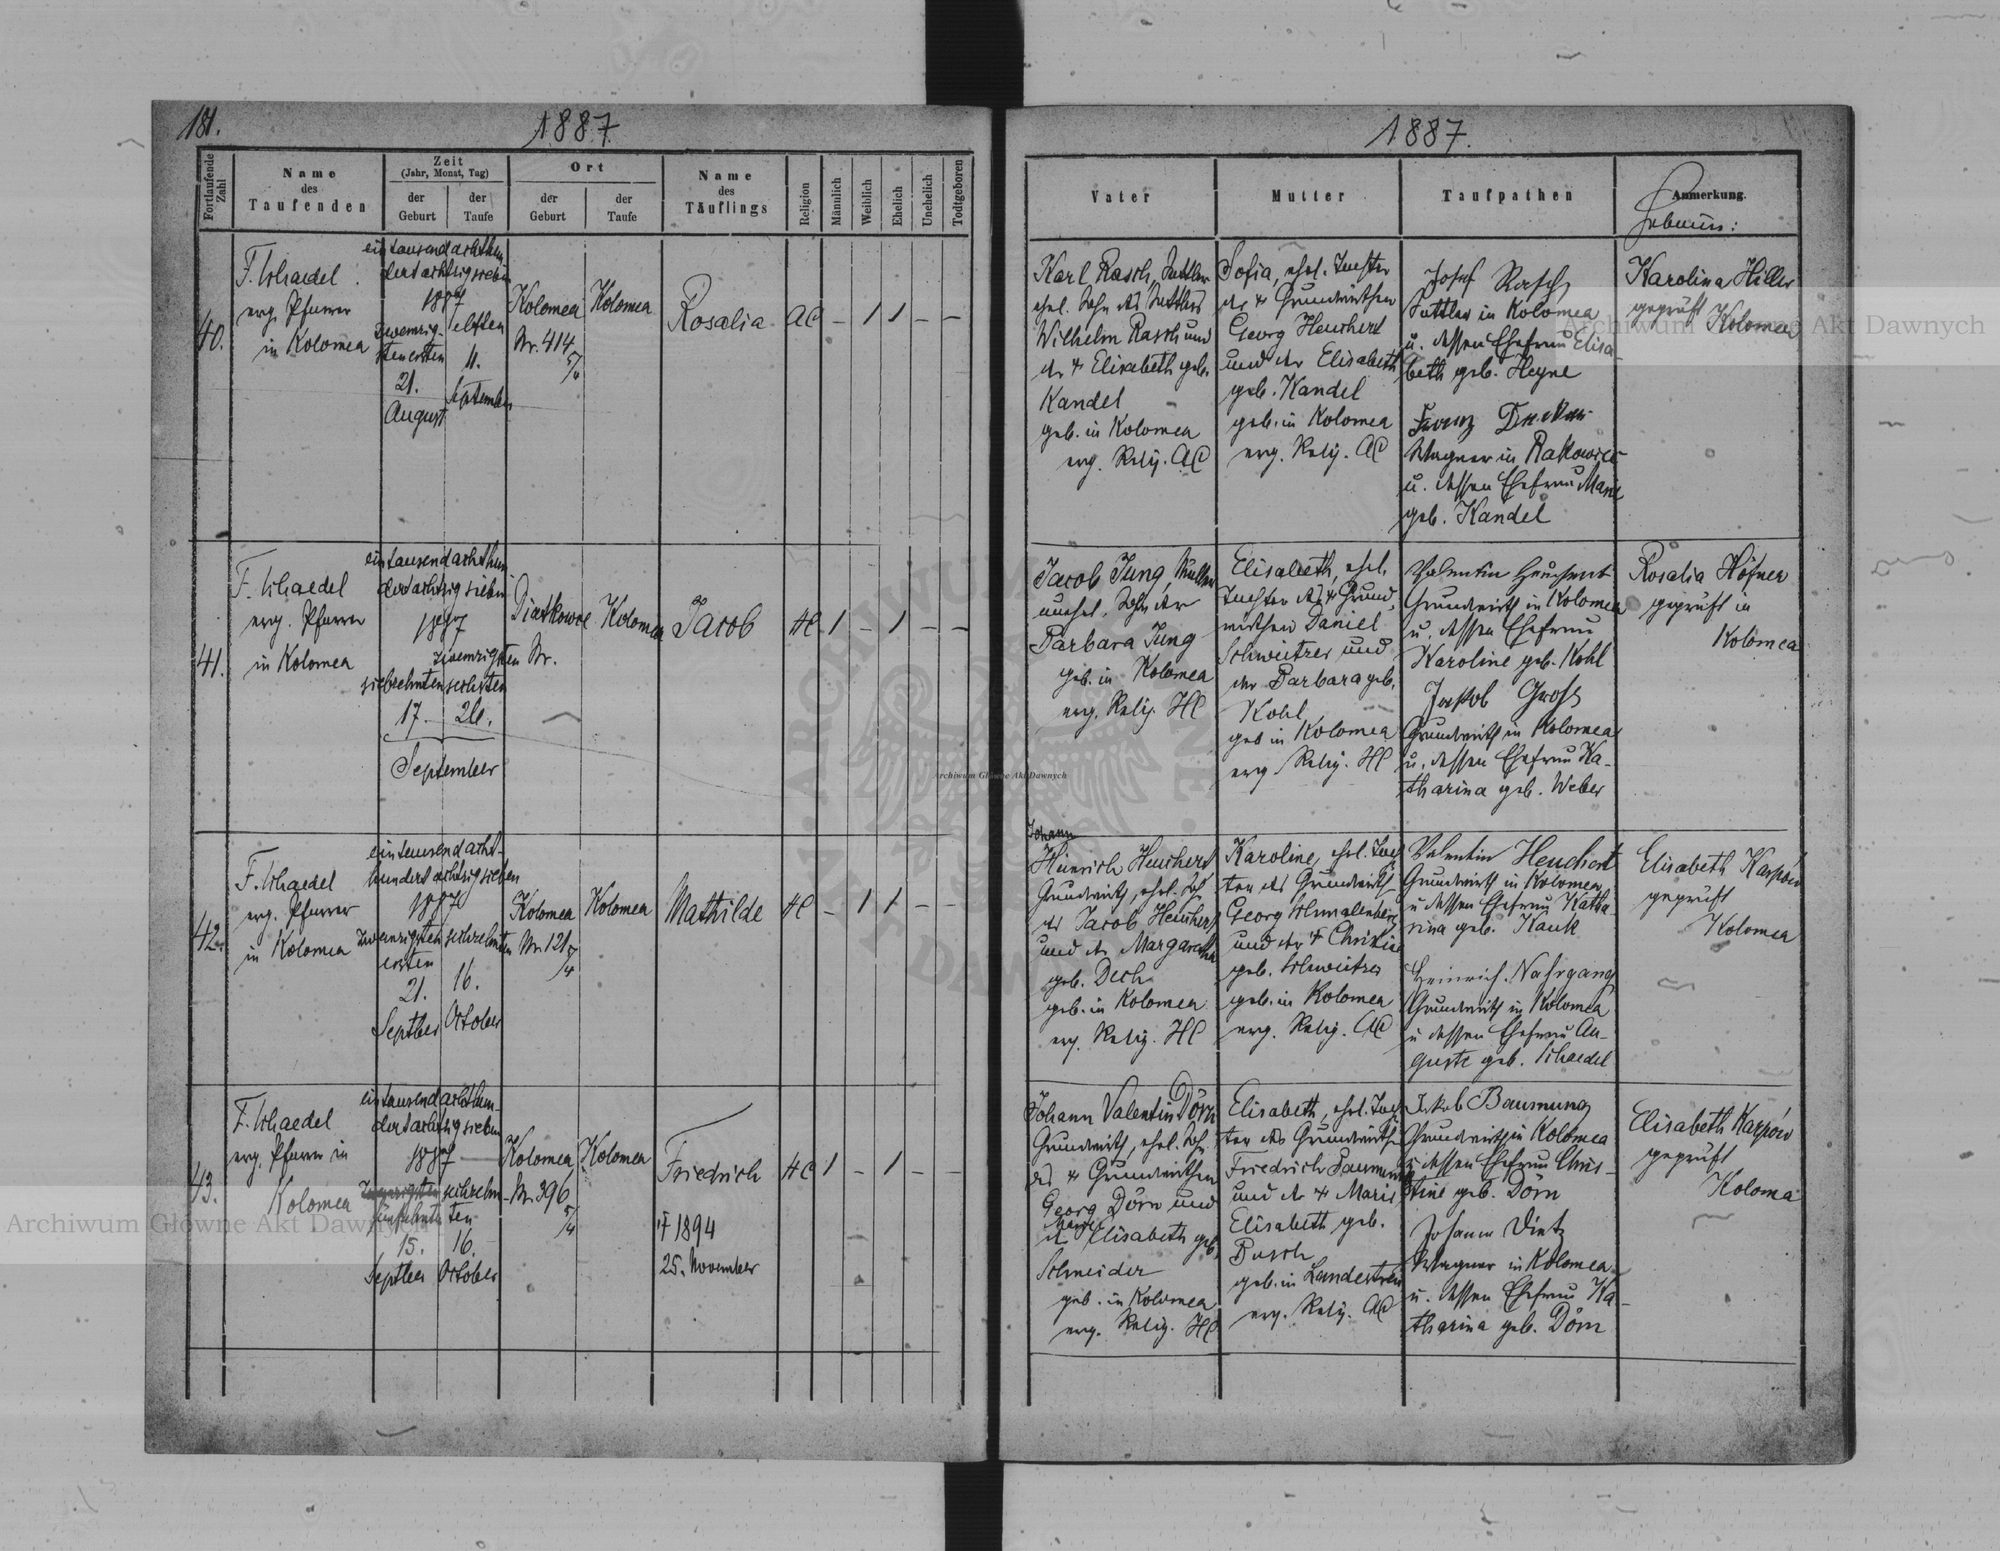 181.
1887
Fortlaufende Zahl
Name
des
Taufenden
Zeit
(Jahr, Monat, Tag)
der
Geburt
der
Taufe
Ort
der
Geburt
der
Taufe
Name
des
Täuflings
Religion
Männlich
Weiblich
Ehelich
Unehelich
Todtgeboren
40.
F. Schaedel
evg. Pfarrer
in Kolomea
eintausendachthun-
dertachtzigsieben
1887
zwanzig-
sten ersten
21.
August
elften
11.
September
Kolomea
Nr. 414
5/4
Kolomea
Rosalia
AC
– 1 1 – –
41.
F. Schaedel
evg. Pfarrer
in Kolomea
eintausendachthun
dertachtzigsieben
1887
zwanzigsten
siebzehnten sechsten
17. 26.
September
Piatkowce
Nr.
Kolomea
Jacob
HC
1 – 1 – –
42.
F. Schaedel
evg. Pfarrer
in Kolomea
eintausendacht-
hundertachtzigsieben
1887
zwanzigsten sechzehnten
ersten
21. 16.
Septber October
Kolomea
Nr. 121
5/4
Kolomea
Mathilde
HC
– 1 1 – –
43.
F. Schaedel
evg. Pfarrer in
Kolomea
eintausendachthun-
dertachtzigsieben
1887
sechzehn-
fünfzehnten ten
15. 16.
Septber October
Kolomea
Nr. 396
5/4
Kolomea
Friedrich
† 1894
25. November
HC
1 – 1 – –
1887.
Vater
Mutter
Taufpathen
Anmerkung.
Hebamme:
Karl Rasch, Sattler
ehel. Sohn des Sattlers
Wilhelm Rasch und
der † Elisabeth geb.
Kandel
geb. in Kolomea
evg. Relig. AC
Sofia, ehel. Tochter
der † Grundwirthen
Georg Heuchert
und der Elisabeth
geb. Kandel
geb. in Kolomea
evg. Relig. AC
Josef Rasch
Sattler in Kolomea
u. dessen Ehefrau Elisa-
beth geb. Heyne
Franz
Wagner in Rakowce
u. dessen Ehefrau Marie
geb. Kandel
Karolina Hiller
geprüft
Kolomea
Jacob Jung, Müller
unehel. Sohn der
Barbara Jung
geb. in Kolomea
evg. Relig. HC
Elisabeth, ehel.
Tochter des † Grund-
wirthen Daniel
Schweitzer und
der Barbara geb.
Kohl
geb in Kolomea
evg. Relig. HC
Valentin Heuchert
Grundwirth in Kolomea
u. dessen Ehefrau
Karoline geb. Kohl
Jakob Gross
Grundwirth in Kolomea
u. dessen Ehefrau Ka-
tharina geb. Weber
Rosalia Höfner
geprüft in
Kolomea
Johann
Heinrich Heuchert
Grundwirth, ehel. Sohn
des Jacob Heuchert
und der Margaretha
geb. Dech
geb. in Kolomea
evg. Relig. HC
Karoline, ehel. Toch
ter des Grundwirth
Georg Schmallenberg
und der † Christine
geb. Schweitzer
geb. in Kolomea
evg. Relig. AC
Valentin Heuchert
Grundwirth in Kolomea
u dessen Ehefrau Katha-
rina geb. Kauk
Heinrich Nahrgang
Grundwirth in Kolomea
u dessen Ehefrau Au-
guste geb. Schaedel
Elisabeth Karpów
geprüft
Kolomea
Johann Valentin Dörn
Grundwirth, ehel. Sohn
des † Grundwirthen
Georg Dörn und
Marie
der Elisabeth geb.
Schneider
geb. in Kolomea
evg. Relig. HC
Elisabeth, ehel. Toch
ter des Grundwirth
Friedrich Baumung
und der † Marie
Elisabeth geb.
Busch
geb. in Landestreu
evg. Relig. AC
Jakob Baumung
Grundwirth in Kolomea
u dessen Ehefrau Chris-
tine geb. Dörn
Johann Dietz
Wagner in Kolomea
u. dessen Ehefrau Ka-
tharina geb. Dörn
Elisabeth Karpów
geprüft
Kolomea
Archiwum Główne Akt Dawnych
Archiwum Główne Akt Dawnych
Archiwum Główne Akt Dawnych